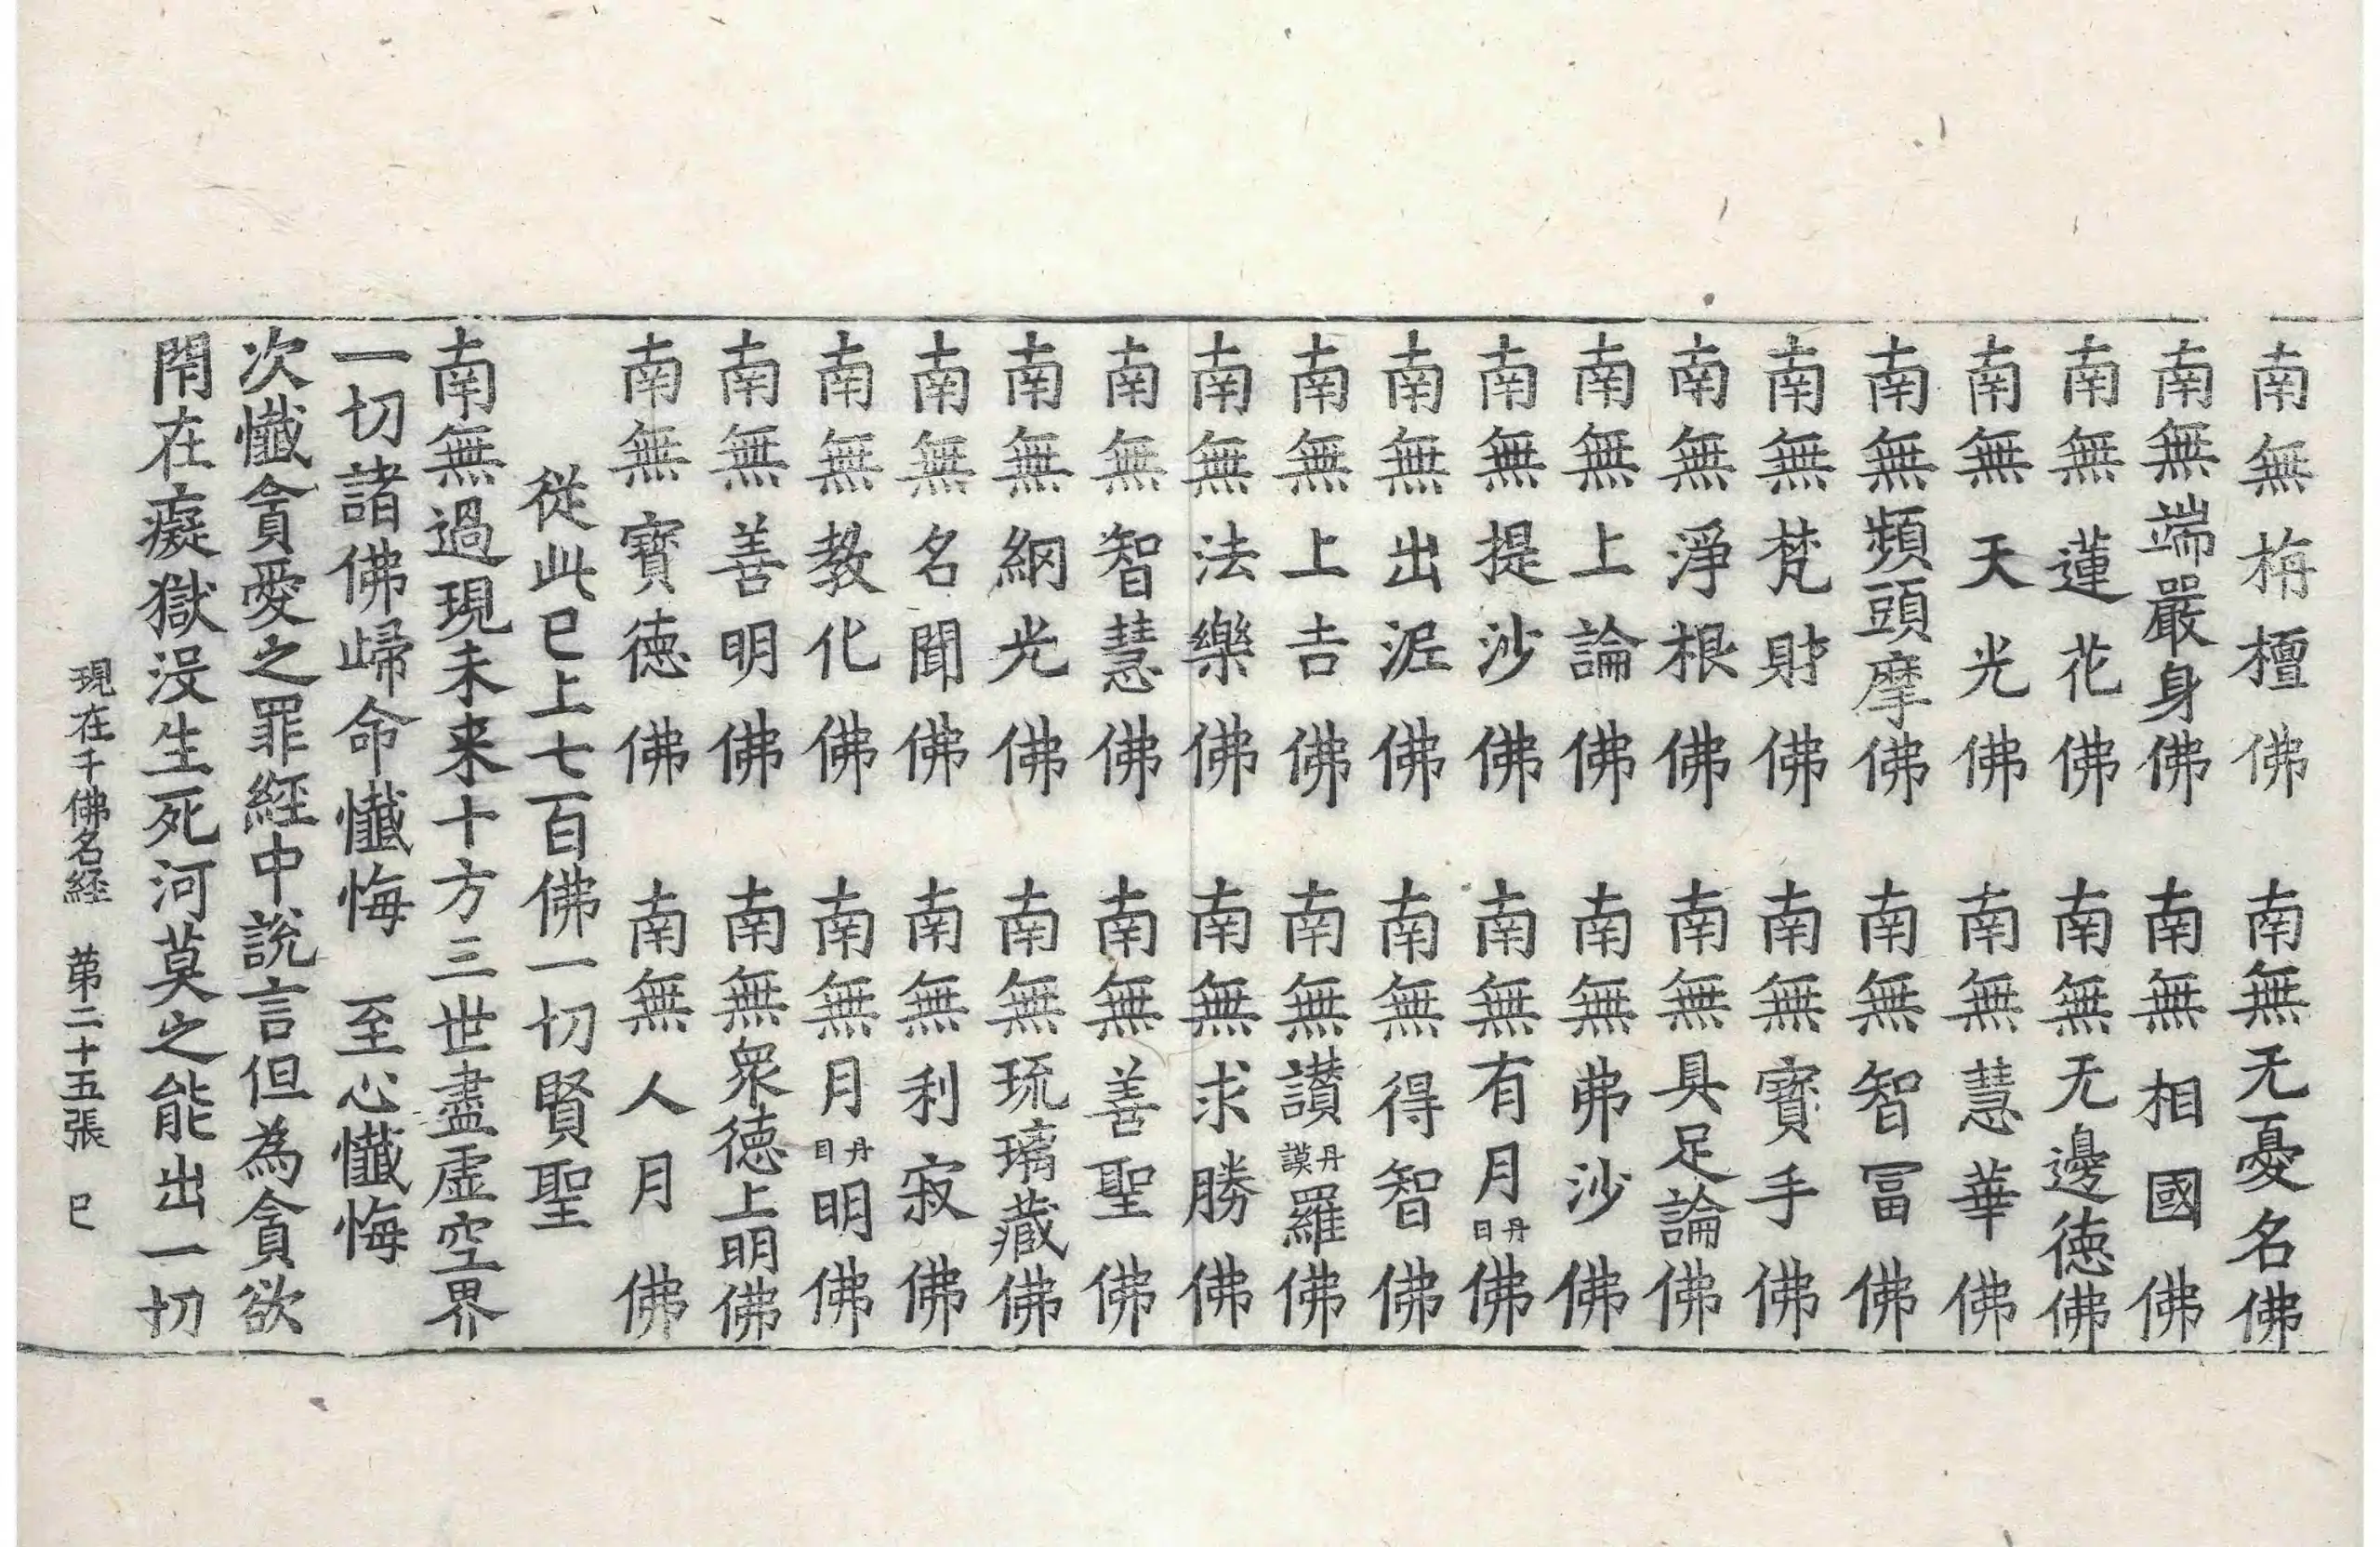 南無栴檀佛　南無无憂名佛
南無端嚴身佛　南無相國佛
南無蓮花佛　南無无邊徳佛
南無天光佛　南無慧華佛
南無頻頭摩佛　南無智冨佛
南無梵財佛　南無寶手佛
南無淨根佛　南無具足論佛
南無上論佛　南無弗沙佛
南無提沙佛　南無有月丹日佛
南無出泥佛　南無得智佛
南無上吉佛　南無讃丹謨羅佛
南無法樂佛　南無求勝佛
南無智慧佛　南無善聖佛
南無網光佛　南無琉璃藏佛
南無名聞佛　南無利寂佛
南無教化佛　南無月丹目明佛
南無善明佛　南無衆徳上明佛
南無寶徳佛　南無人月佛
從此巳上七百佛一切賢聖
南無過現未来十方三世盡虚空界
一切諸佛歸命懺悔　至心懺悔
次懺貪愛之罪經中說言但為貪欲
閇在癡獄没生死河莫之能出一切
現在千佛名経　苐二十五張　巳